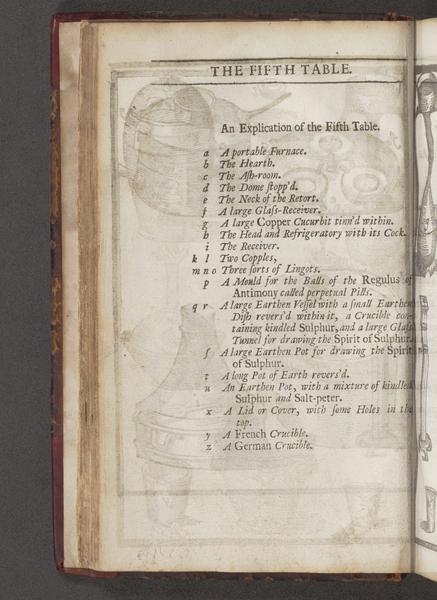 THE FIFTH TABLE.
An Explication of the Fifth Table.
a A portable Furnace.
b The Hearth.
c The Aſh-room.
d The Dome ſtopp'd.
e The Neck of the Retort.
f A large Glaſs-Receiver.
g A large Copper Cucurbit tinn'd within.
h The Head and Refrigeratory with its Cock.
i The Receiver.
k l Two Copples,
m n o Three ſorts of Lingots.
p A Mould for the Balls of the Regulus of
Antimony called perpetual Pills.
q r A large Earthen Veſſel with a ſmall Earthen
Diſh revers'd within it, a Crucible con-
taining kindled Sulphur, and a large Glaſs
Tunnel for drawing the Spirit of Sulphur.
ſ A large Earthen Pot for drawing the Spirit
of Sulphur.
t A long Pot of Earth revers'd.
u An Earthen Pot, with a mixture of kindled
Sulphur and Salt-peter.
x A Lid or Cover, with ſome Holes in the
top.
y A French Crucible.
z A German Crucible.